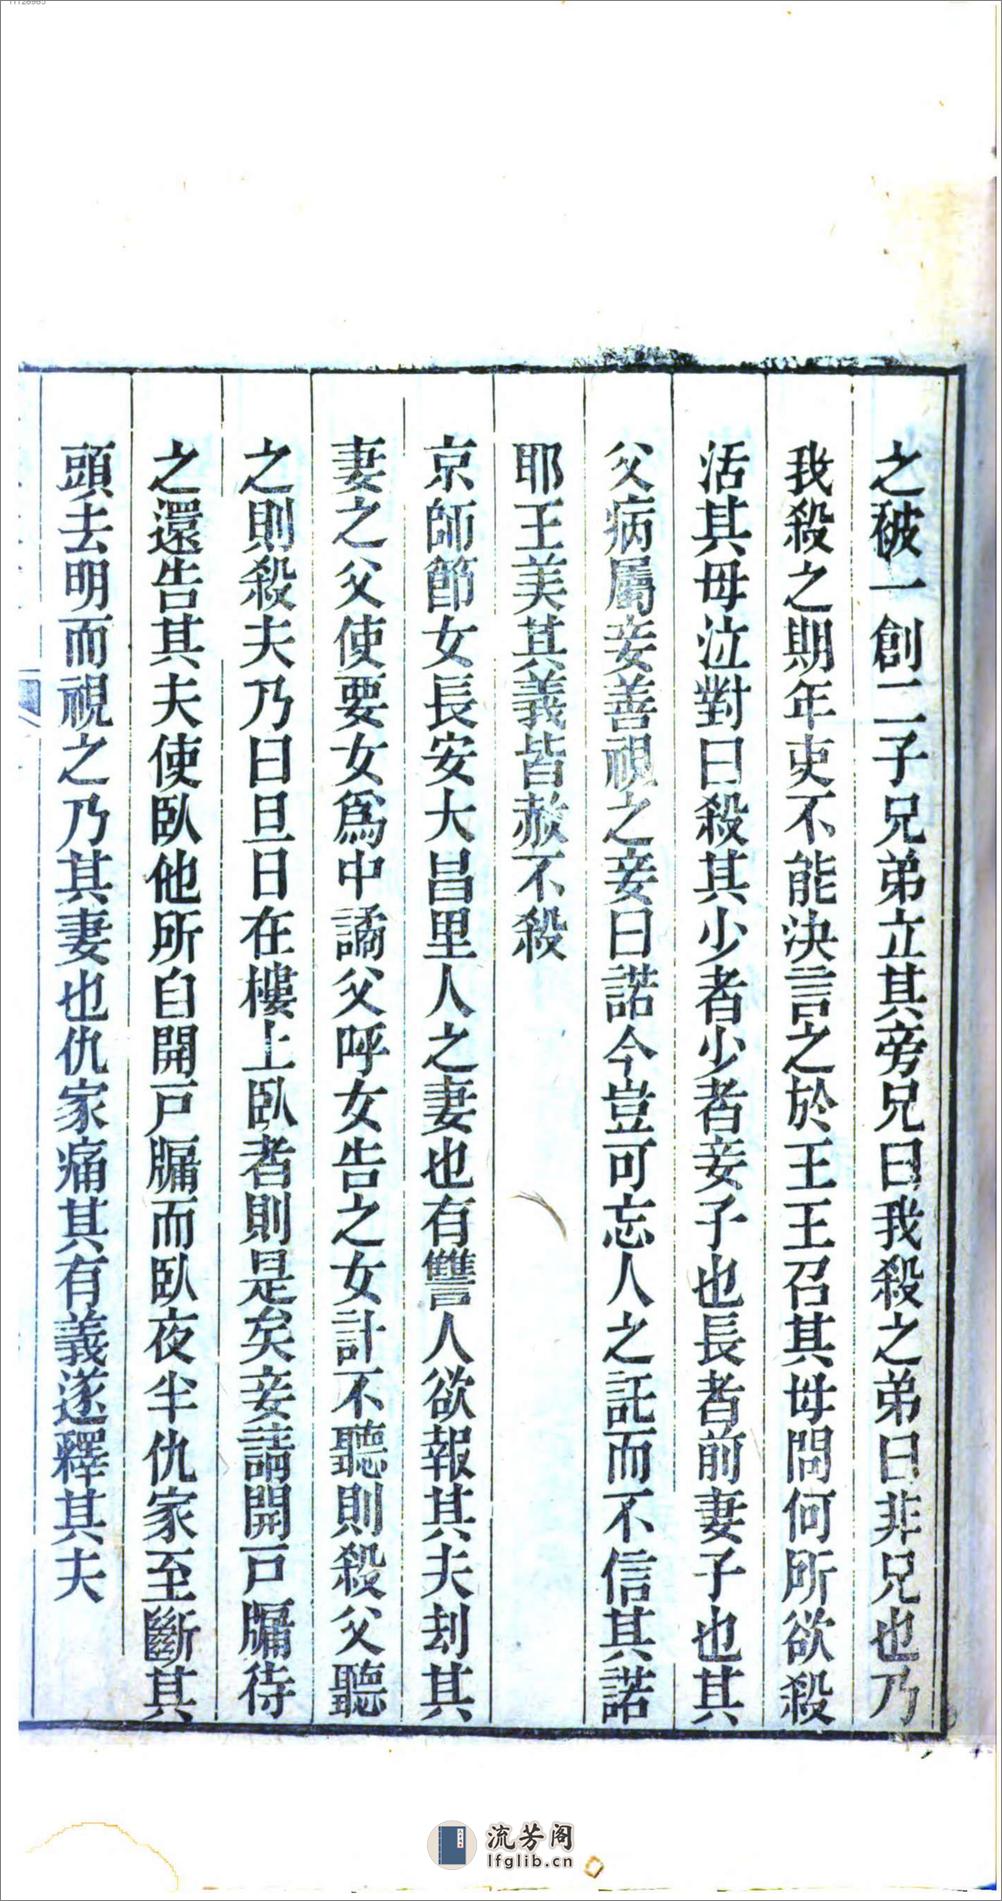 之破一創二子兄弟立其旁兄曰我殺之弟曰非兄也乃
我殺之期年吏不能決言之於王王召其母問何所欲殺
活其母泣對曰殺其少者少者妾子也長者前妻子也其
父病屬妾善視之妾曰諾今豈可忘人之託而不信其諾
耶王美其義皆赦不殺
京師節女長安大昌里人之妻也有讐人欲報其夫刦其
妻之父使要女爲中譎父呼女告之女計不聽則殺父聽
之則殺夫乃曰旦日在樓上臥者則是矣妾請開戸牖待
之還告其夫使臥他所自開戸牖而臥夜半仇家至斷其
頭去明而視之乃其妻也仇家痛其有義遂釋其夫
流芳阁
lfglib.cn